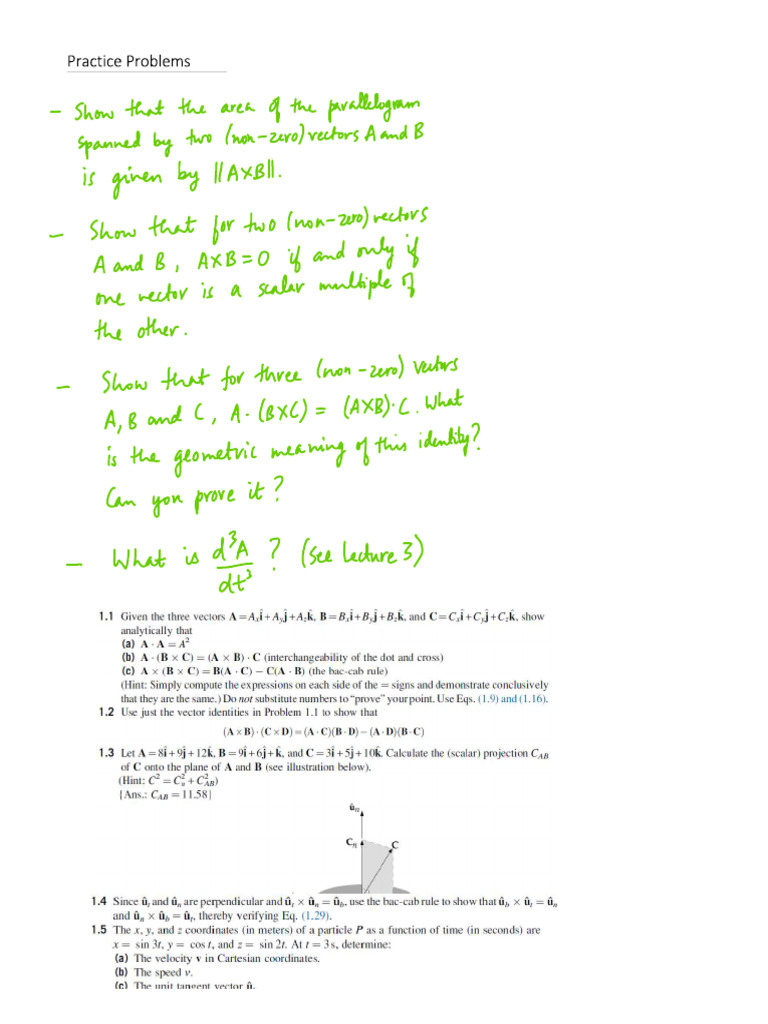 Practice Problems
- Show that the area of the parallelogram
spanned by two (non-zero) vectors A and B
is given by ||A×B||.
- Show that for two (non-zero) vectors
A and B, A×B=0 if and only if
one vector is a scalar multiple of
the other.
- Show that for three (non-zero) vectors
A, B and C, A·(B×C) = (A×B)·C. What
is the geometric meaning of this identity?
Can you prove it?
- What is d³A/dt³ ? (See lecture 3)
1.1 Given the three vectors A=Aₓî+Aᵧĵ+A_zk̂, B=Bₓî+Bᵧĵ+B_zk̂, and C=Cₓî+Cᵧĵ+C_zk̂, show
analytically that
(a) A · A = A²
(b) A · (B × C) = (A × B) · C (interchangeability of the dot and cross)
(c) A × (B × C) = B(A · C) − C(A · B) (the bac-cab rule)
(Hint: Simply compute the expressions on each side of the = signs and demonstrate conclusively
that they are the same.) Do not substitute numbers to "prove" your point. Use Eqs. (1.9) and (1.16).
1.2 Use just the vector identities in Problem 1.1 to show that
(A × B) · (C × D) = (A · C)(B · D) − (A · D)(B · C)
1.3 Let A = 8î + 9ĵ + 12k̂, B = 9î + 6ĵ + k̂, and C = 3î + 5ĵ + 10k̂. Calculate the (scalar) projection C_AB
of C onto the plane of A and B (see illustration below).
(Hint: C² = C_n² + C_AB²)
{Ans.: C_AB = 11.58}
û_n
C_n
C
1.4 Since û_t and û_n are perpendicular and û_t × û_n = û_b, use the bac-cab rule to show that û_b × û_t = û_n
and û_n × û_b = û_t, thereby verifying Eq. (1.29).
1.5 The x, y, and z coordinates (in meters) of a particle P as a function of time (in seconds) are
x = sin 3t, y = cos t, and z = sin 2t. At t = 3 s, determine:
(a) The velocity v in Cartesian coordinates.
(b) The speed v.
(c) The unit tangent vector û_t